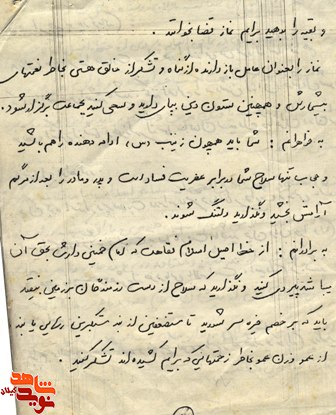 و بقیه را بدهید برایم نماز قضا بخوانند.
نماز را بعنوان عامل بازدارنده از گناه و تشکر از خالق هستی بخاطر نعمتهای
بیشمارش و همچنین ستون دین بپای دارید و سعی کنید بجماعت برگزار شود.
به خواهرانم: شما باید همچون زینب (س) ادامه دهنده راهم باشید
و حجاب تنها سلاح شما در برابر عفریت فساد است و پدر و مادر را بعد از مرگم
آرامش بخشید و نگذارید دلتنگ شوند.
به برادرانم: از خط اصیل اسلام فقاهت که امام خمینی وارث بحق آن
میباشد پیروی کنید و نگذارید که سلاح از دست رزمندگان بر زمین بیفتد
باید که بر خصم خیره سر شورید تا مستضعفین از بند مستکبرین رهایی یابند
از عمو و زن عمو بخاطر زحمتهایی که برایم کشیده اند تشکر میکنید.
نوید شاهد
گیلان